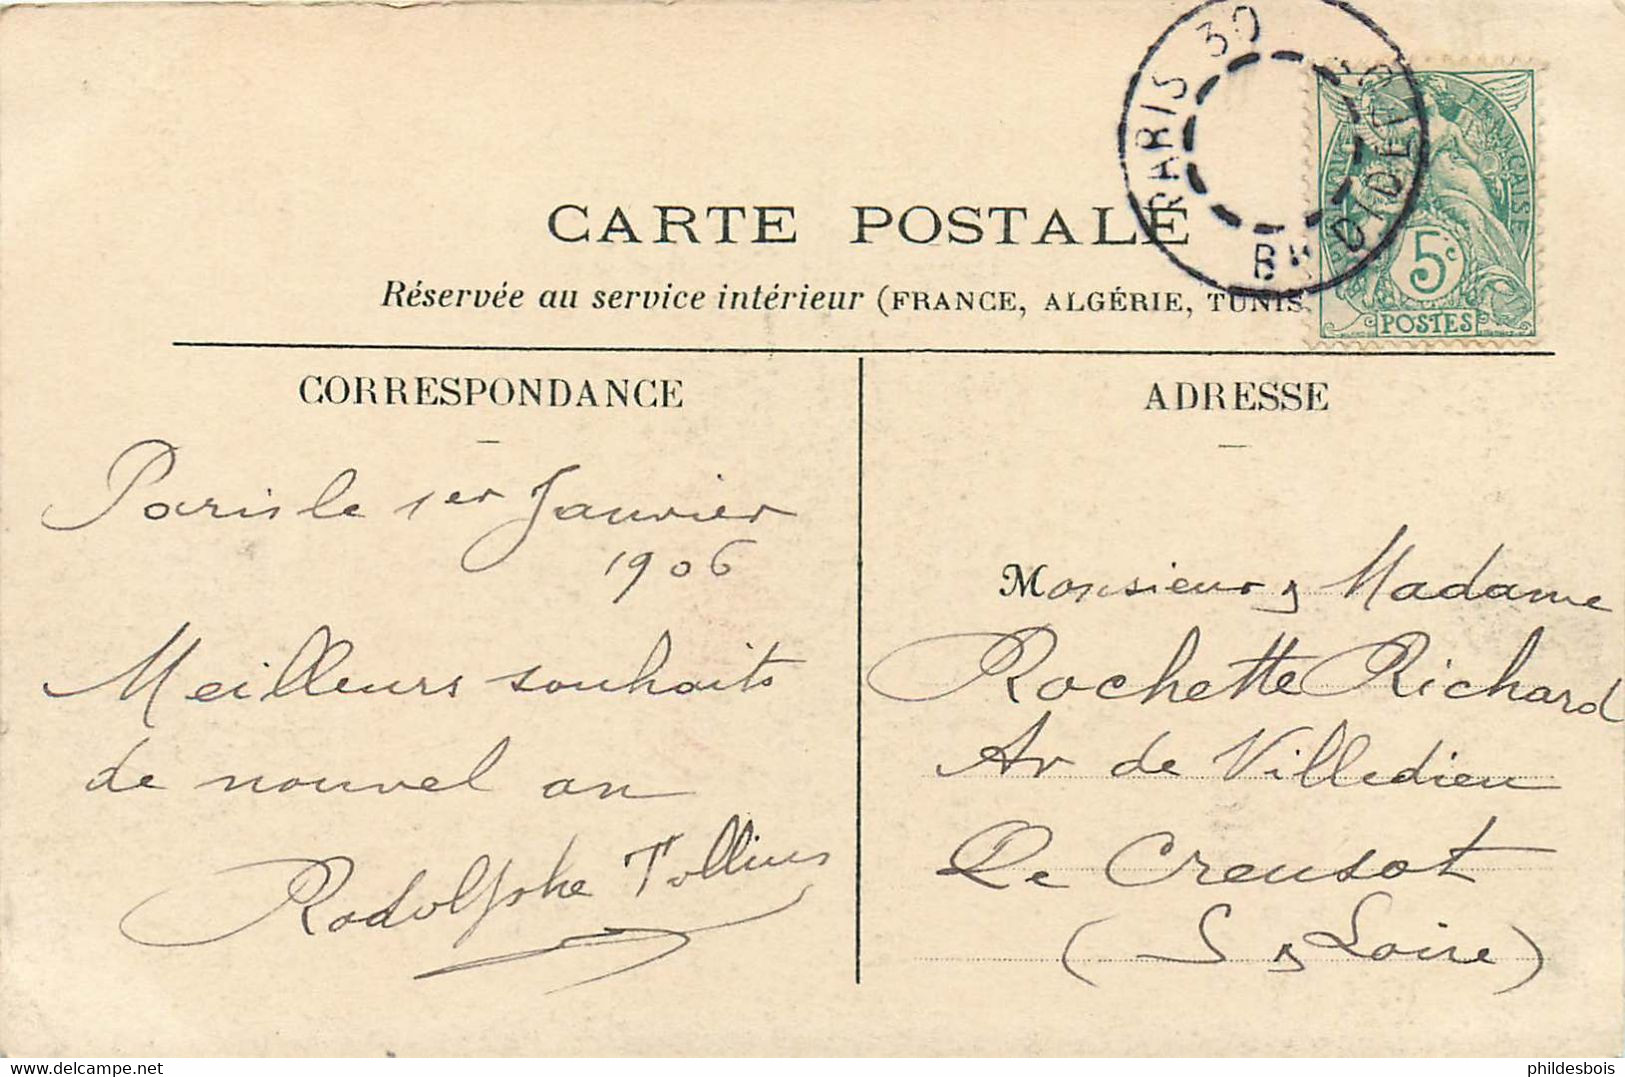 PARIS 30 Bd DIDEROT
RÉPUBLIQUE FRANÇAISE
5c
POSTES
CARTE POSTALE
Réservée au service intérieur (FRANCE, ALGÉRIE, TUNIS
CORRESPONDANCE
Paris le 1er Janvier
1906
Meilleurs souhaits
de nouvel an
Rodolphe Tollius
ADRESSE
Monsieur & Madame
Rochette Richard
Av de Villedieu
Le Creusot
(S & Loire)
www.delcampe.net
phildesbois